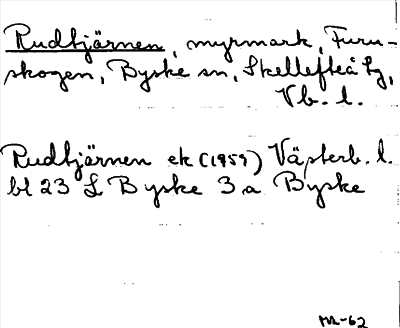 Rudtjärnen, myrmark, Furu-
skogen, Byske sn, Skellefteå tg,
Vb. l.
Rudtjärnen ek (1959) Västerb. l.
bl 23 L Byske 3 a Byske
-62